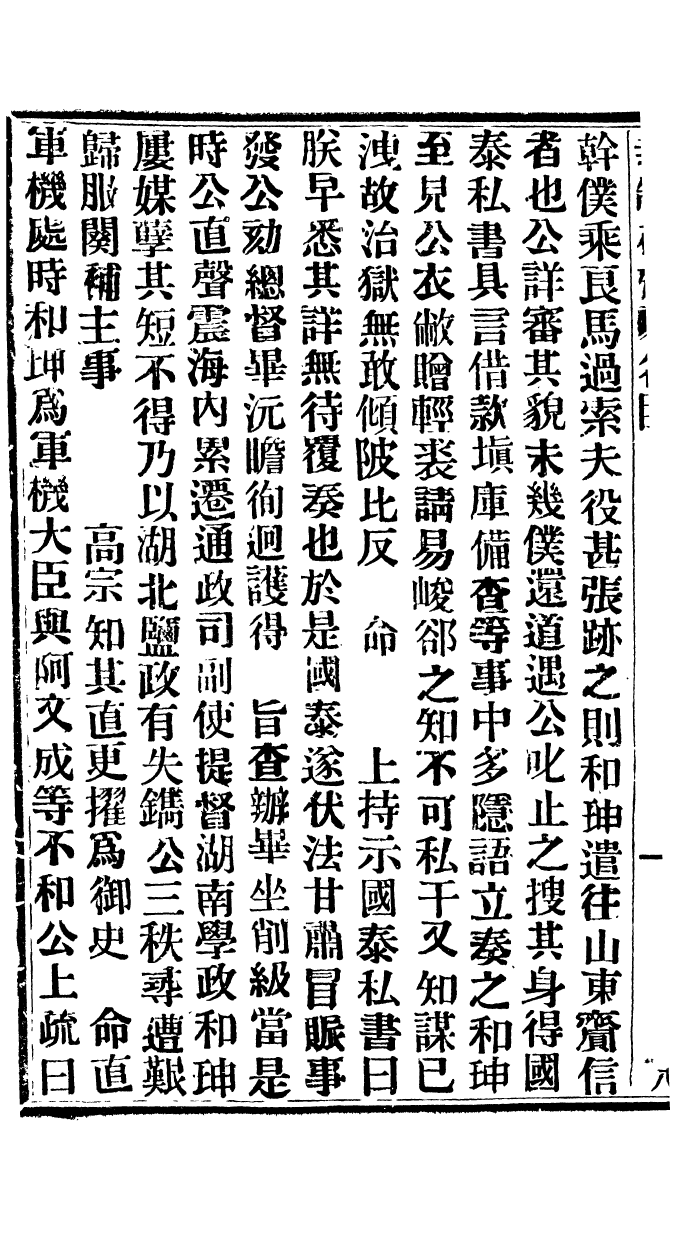 幹僕乘良馬過索夫役甚張跡之則和珅遣往山東齎信
者也公詳審其貌未幾僕還道遇公叱止之搜其身得國
泰私書具言借款塡庫備查等事中多隱語立奏之和珅
至見公衣敝贈輕裘請易峻郤之知不可私干又知謀已
洩故治獄無敢傾陂比反　命　　上持示國泰私書曰
朕早悉其詳無待覆奏也於是國泰遂伏法甘肅冒賑事
發公劾總督畢沅瞻徇迴護得　旨查辦畢坐削級當是
時公直聲震海內累遷通政司副使提督湖南學政和珅
屢媒孽其短不得乃以湖北鹽政有失鐫公三秩尋遭艱
歸服闋補主事　　　高宗知其直更擢爲御史　命直
軍機處時和珅爲軍機大臣與阿文成等不和公上疏曰